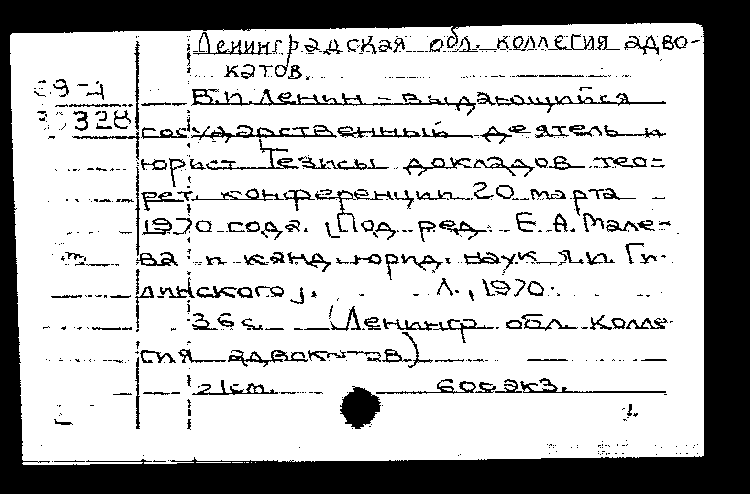 Ленинградская обл. коллегия адво-
катов.
В.И. Ленин – выдающийся
328 государственный деятель и
юрист. Тезисы докладов тео-
рет. конференции 20 марта
1970 года. [Под ред. Е.А. Мале-
ва и канд. юрид. наук Я.И. Ги-
линского].    Л., 1970.
36 с. (Ленингр. обл. колле
гия адвокатов)
21см.    600 экз.